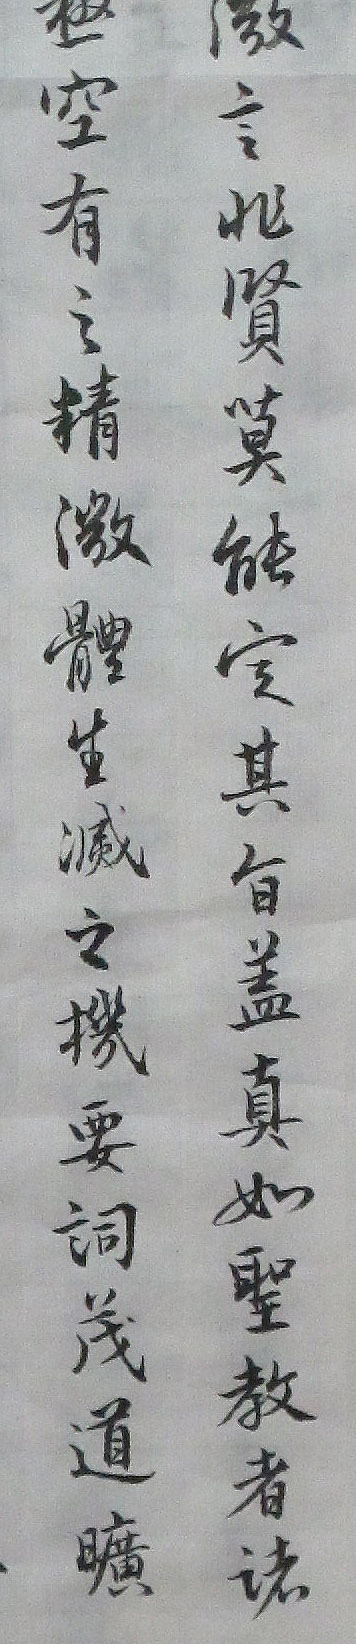 微言非賢莫能定其旨蓋真如聖教者諸
極空有之精微體生滅之機要詞茂道曠